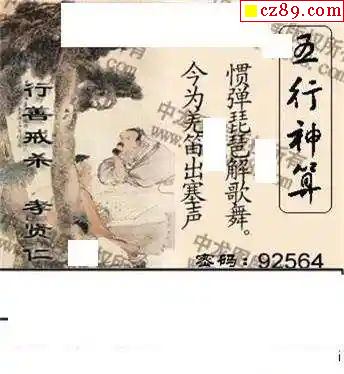 cz89.com
五行神算
惯弹琵琶解歌舞。
今为羌笛出塞声
行善戒杀 孝贤仁
密码：92564
i